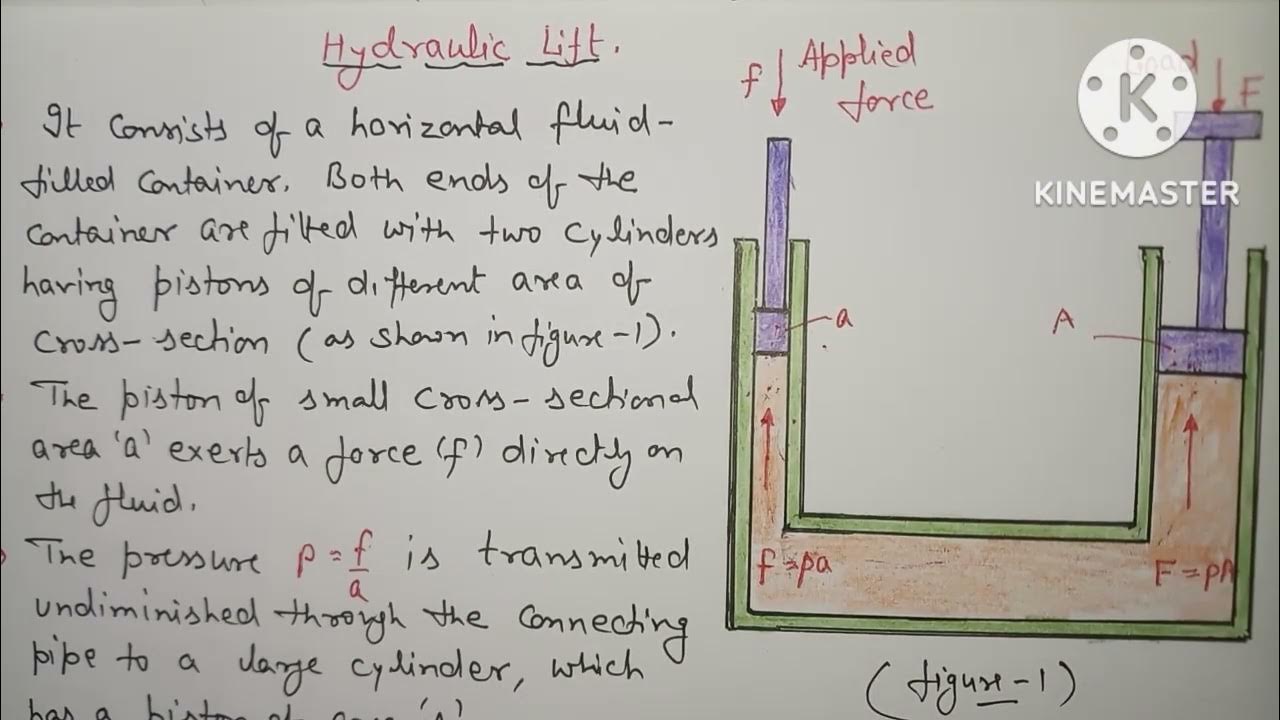 Hydraulic Lift.
It consists of a horizontal fluid-
filled container. Both ends of the
container are fitted with two cylinders
having pistons of different area of
cross-section (as shown in figure-1).
The piston of small cross-sectional
area 'a' exerts a force (f) directly on
the fluid.
The pressure p = f/a is transmitted
undiminished through the connecting
pipe to a large cylinder, which
has a piston of area 'A'
f
Applied
force
Load
F
K
KINEMASTER
a
A
f=pa
F=pA
(figure-1)